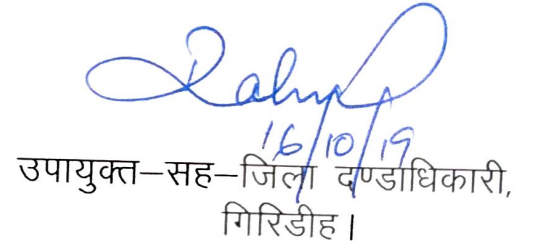 16/10/19
उपायुक्त–सह–जिला दण्डाधिकारी,
गिरिडीह।